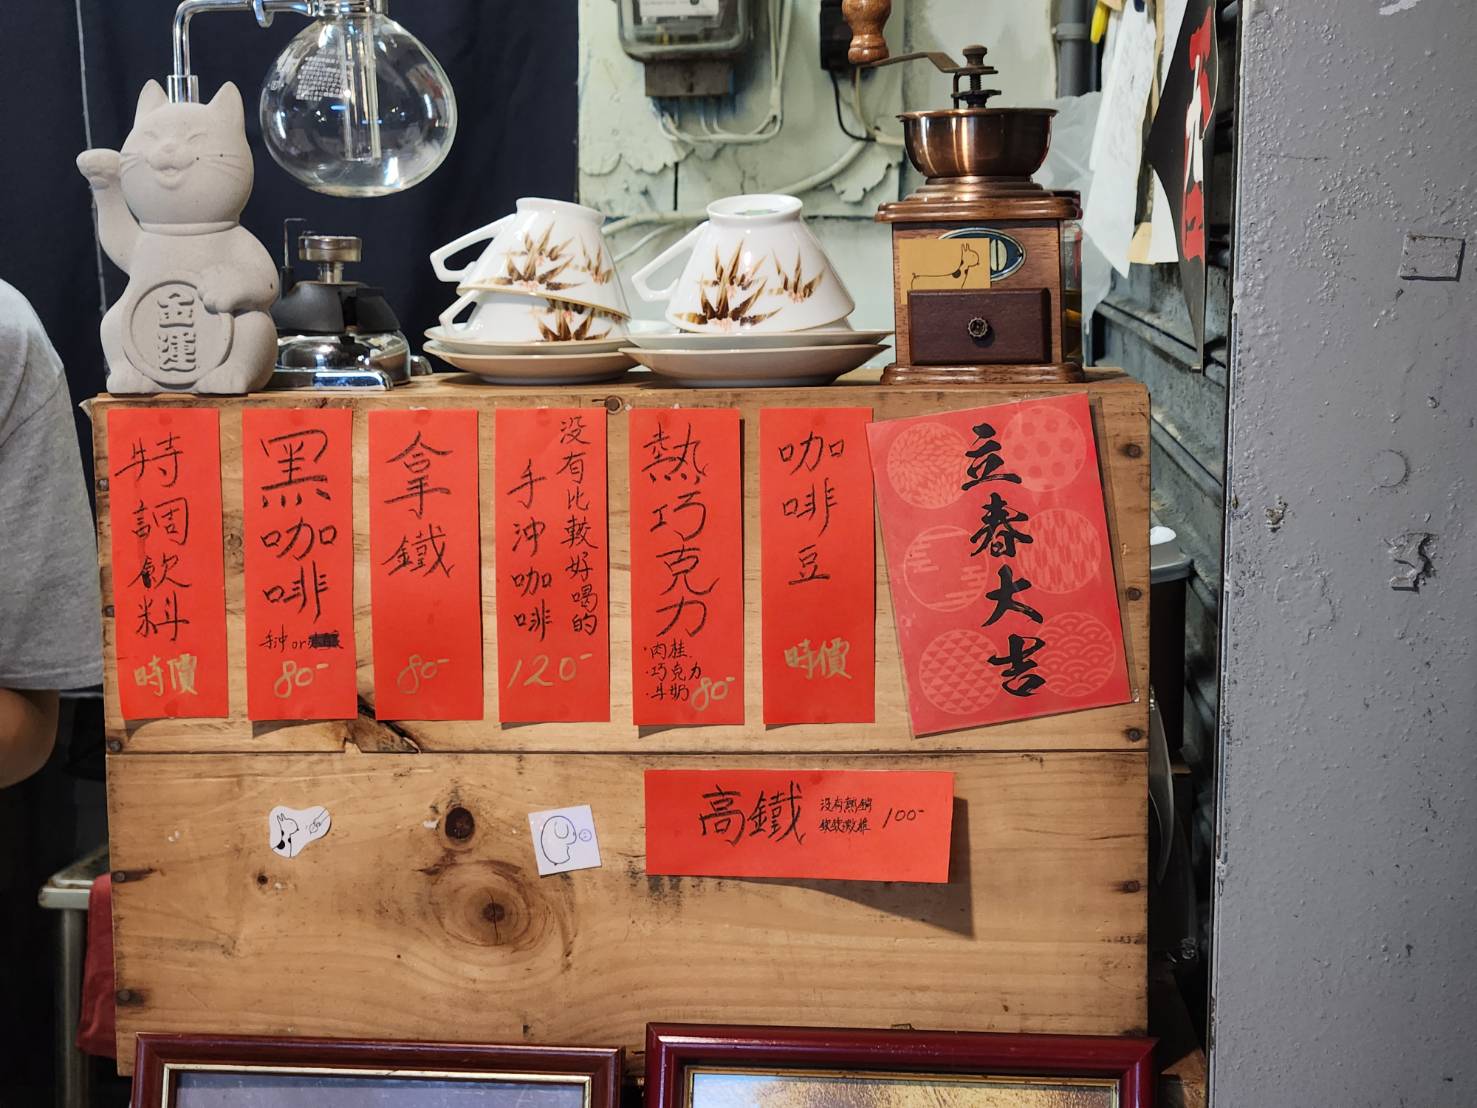 金運
特調飲料
時價
黑咖啡
手沖or
80-
拿鐵
80-
沒有比較好喝的
手沖咖啡
120-
熱巧克力
·肉桂
·巧克力
·牛奶
80-
咖啡豆
時價
立春大吉
高鐵
沒有熱銷
100-